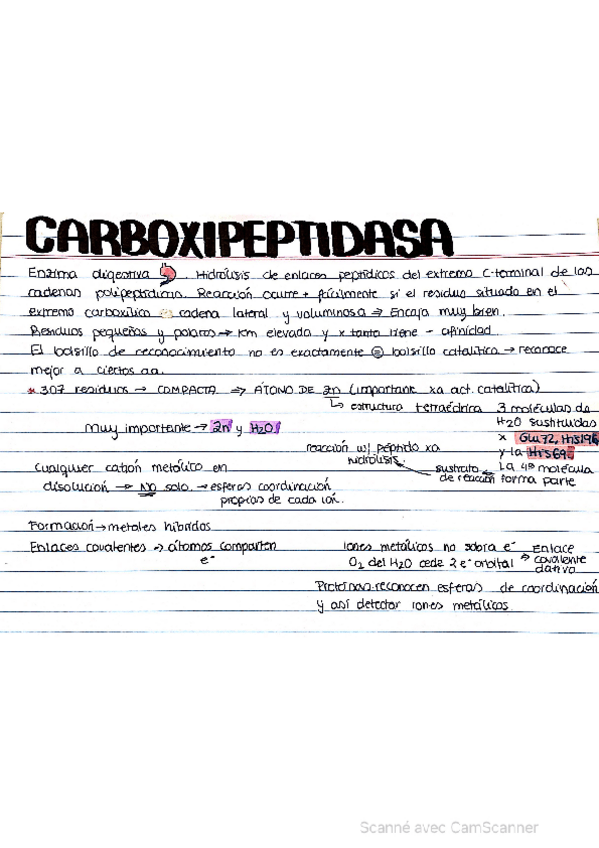 CARBOXIPEPTIDASA
Enzima digestiva Hidrólisis de enlaces peptídicos del extremo C-terminal de las
cadenas polipeptídicas. Reacción ocurre + fácilmente si el residuo situado en el
extremo carboxílico cadena lateral y voluminosa → Encaja muy bien.
Residuos pequeños y polares → Km elevada y x tanto tiene - afinidad.
El bolsillo de reconocimiento no es exactamente = bolsillo catalítica → reconoce
mejor a ciertos aa.
* 307 residuos → COMPACTA ⇒ ÁTOMO DE Zn (important xa act. catalítica)
↳ estructura tetraédrica 3 moléculas de
H2O sustituidas
x Glu 72, His 196
y la His 69.
La 4ª molécula
forma parte
Muy importante → Zn y H2O
reacción w/ péptido xa
hidrólisis
sustrato
de reacción
Cualquier catión metálico en
disolución → No solo. → esferas coordinación
propias de cada ion.
Formación → metales híbridos
Enlaces covalentes → átomos comparten
e-
Iones metálicos no sobra e-
O2 del H2O cede 2 e- orbital
→ Enlace
covalente
dativo
Proteínas reconocen esferas de coordinación
y así detectar iones metálicos
Scanné avec CamScanner